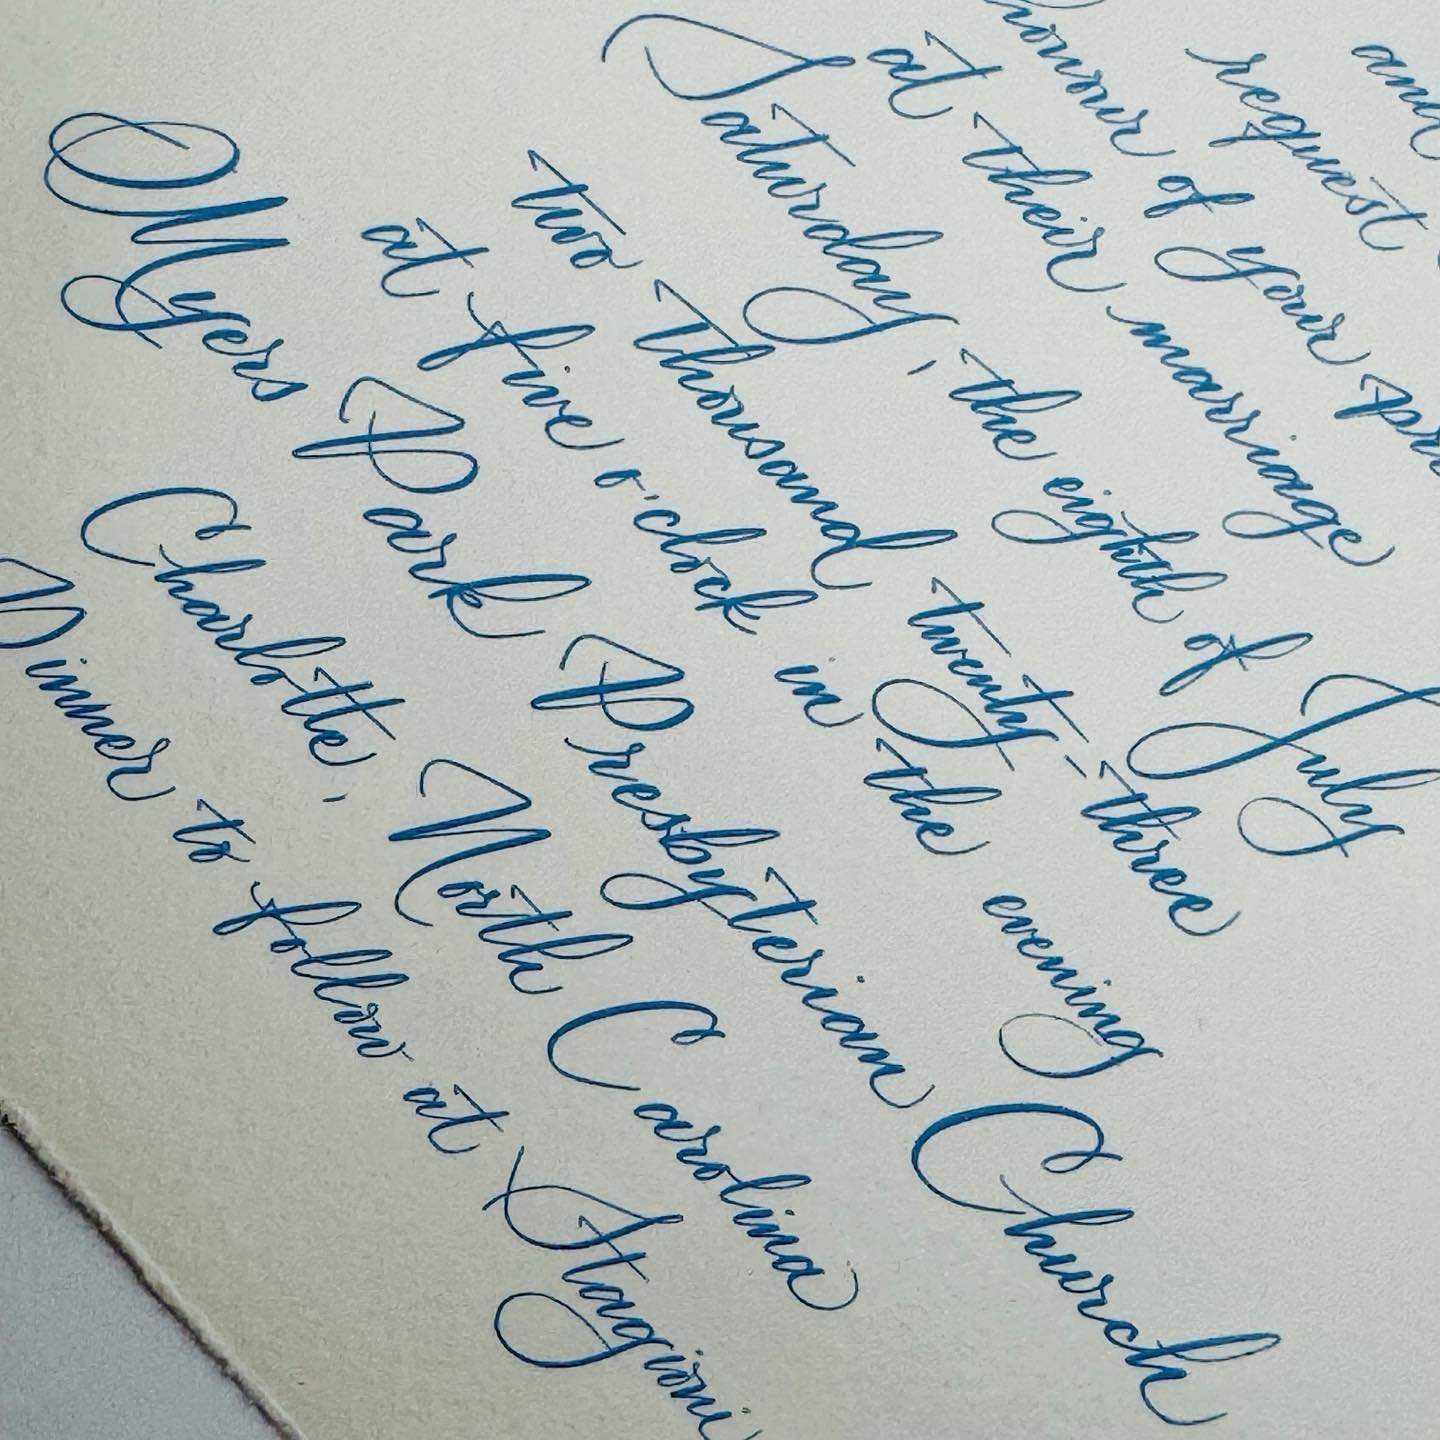 and
request
honour of your
at their marriage
Saturday, the eighth of July
two thousand twenty-three
at five o'clock in the evening
Myers Park Presbyterian Church
Charlotte, North Carolina
Dinner to follow at Stagioni